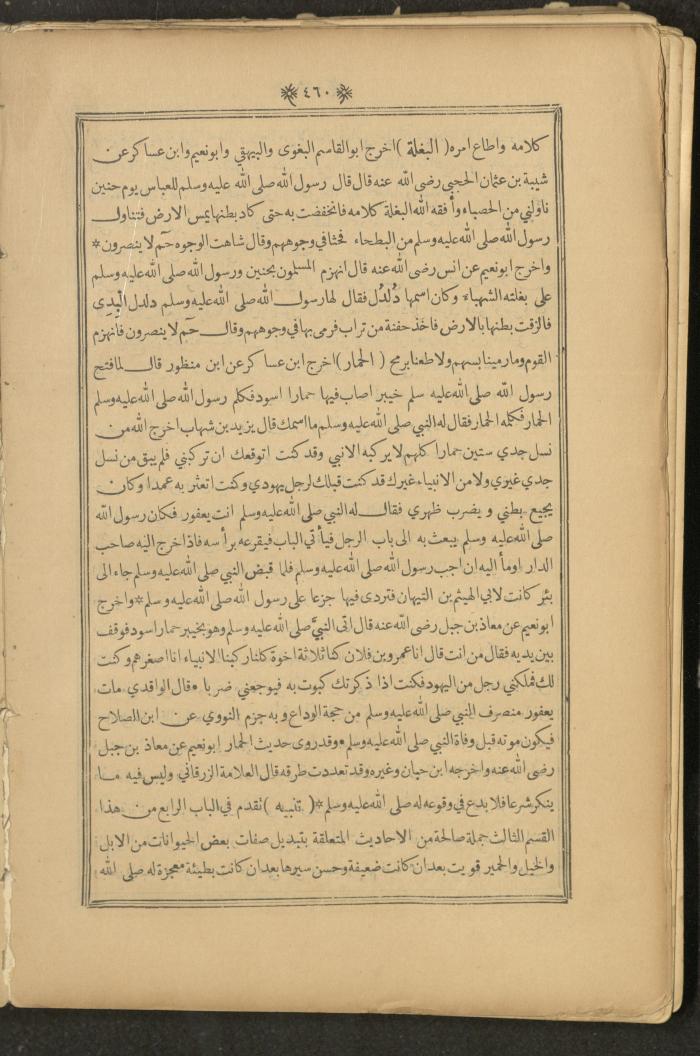 ❋ ٤٦٠ ❋
كلامه واطاع امره ( البغلة ) اخرج ابوالقاسم البغوى والبيهقي وابونعيم وابن عساكر عن
شيبة بن عثمان الحجبي رضى الله عنه قال قال رسول الله صلى الله عليه وسلم للعباس يوم حنين
ناولني من الحصباء وأفقه الله البغلة كلامه فانخفضت به حتى كاد بطنها يمس الارض فتناول
رسول الله صلى الله عليه وسلم من البطحاء فحثا في وجوههم وقال شاهت الوجوه حم لا ينصرون *
واخرج ابونعيم عن انس رضى الله عنه قال انهزم المسلمون بحنين ورسول الله صلى الله عليه وسلم
على بغلته الشهباء وكان اسمها دُلدُل فقال لها رسول الله صلى الله عليه وسلم دلدل الْبِدِى
فالزقت بطنها بالارض فاخذ حفنة من تراب فرمى بها في وجوههم وقال حم لا ينصرون فانهزم
القوم ومارمينا بسهم ولا طعنا برمح ( الحمار ) اخرج ابن عساكر عن ابن منظور قال لما فتح
رسول الله صلى الله عليه سلم خيبر اصاب فيها حمارا اسود فكلم رسول الله صلى الله عليه وسلم
الحمار فكلمه الحمار فقال له النبي صلى الله عليه وسلم ما اسمك قال يزيد بن شهاب اخرج الله من
نسل جدي ستين حمارا كلهم لا يركبه الا نبي وقد كنت اتوقعك ان تركبني فلم يبق من نسل
جدي غيري ولا من الانبياء غيرك قد كنت قبلك لرجل يهودي وكنت اتعثر به عمدا وكان
يجيع بطني و يضرب ظهري فقال له النبي صلى الله عليه وسلم انت يعفور فكان رسول الله
صلى الله عليه وسلم يبعث به الى باب الرجل فيأتي الباب فيقرعه برأسه فاذا خرج اليه صاحب
الدار اومأ اليه ان اجب رسول الله صلى الله عليه وسلم فلما قبض النبي صلى الله عليه وسلم جاء الى
بئر كانت لابي الهيثم بن التيهان فتردى فيها جزعا على رسول الله صلى الله عليه وسلم * واخرج
ابونعيم عن معاذ بن جبل رضى الله عنه قال اتى النبيَّ صلى الله عليه وسلم وهو بخيبر حمار اسود فوقف
بين يديه فقال من انت قال انا عمرو بن فلان كنا ثلاثة اخوة كلنا ركبنا الانبياء انا اصغرهم وكنت
لك فملكني رجل من اليهود فكنت اذا ذكرتك كبوت به فيوجعني ضربا * قال الواقدي مات
يعفور منصرف النبي صلى الله عليه وسلم من حجة الوداع و به جزم النووي عن ابن الصلاح
فيكون موته قبل وفاة النبي صلى الله عليه وسلم * وقد روى حديث الحمار ابونعيم عن معاذ بن جبل
رضى الله عنه واخرجه ابن حبان وغيره وقد تعددت طرقه قال العلامة الزرقاني وليس فيه ما
ينكر شرعا فلا بدع في وقوعه له صلى الله عليه وسلم * ( تنبيه ) تقدم في الباب الرابع من هذا
القسم الثالث جملة صالحة من الاحاديث المتعلقة بتبديل صفات بعض الحيوانات من الابل
والخيل والحمير قويت بعد ان كانت ضعيفة وحسن سيرها بعد ان كانت بطيئة معجزة له صلى الله